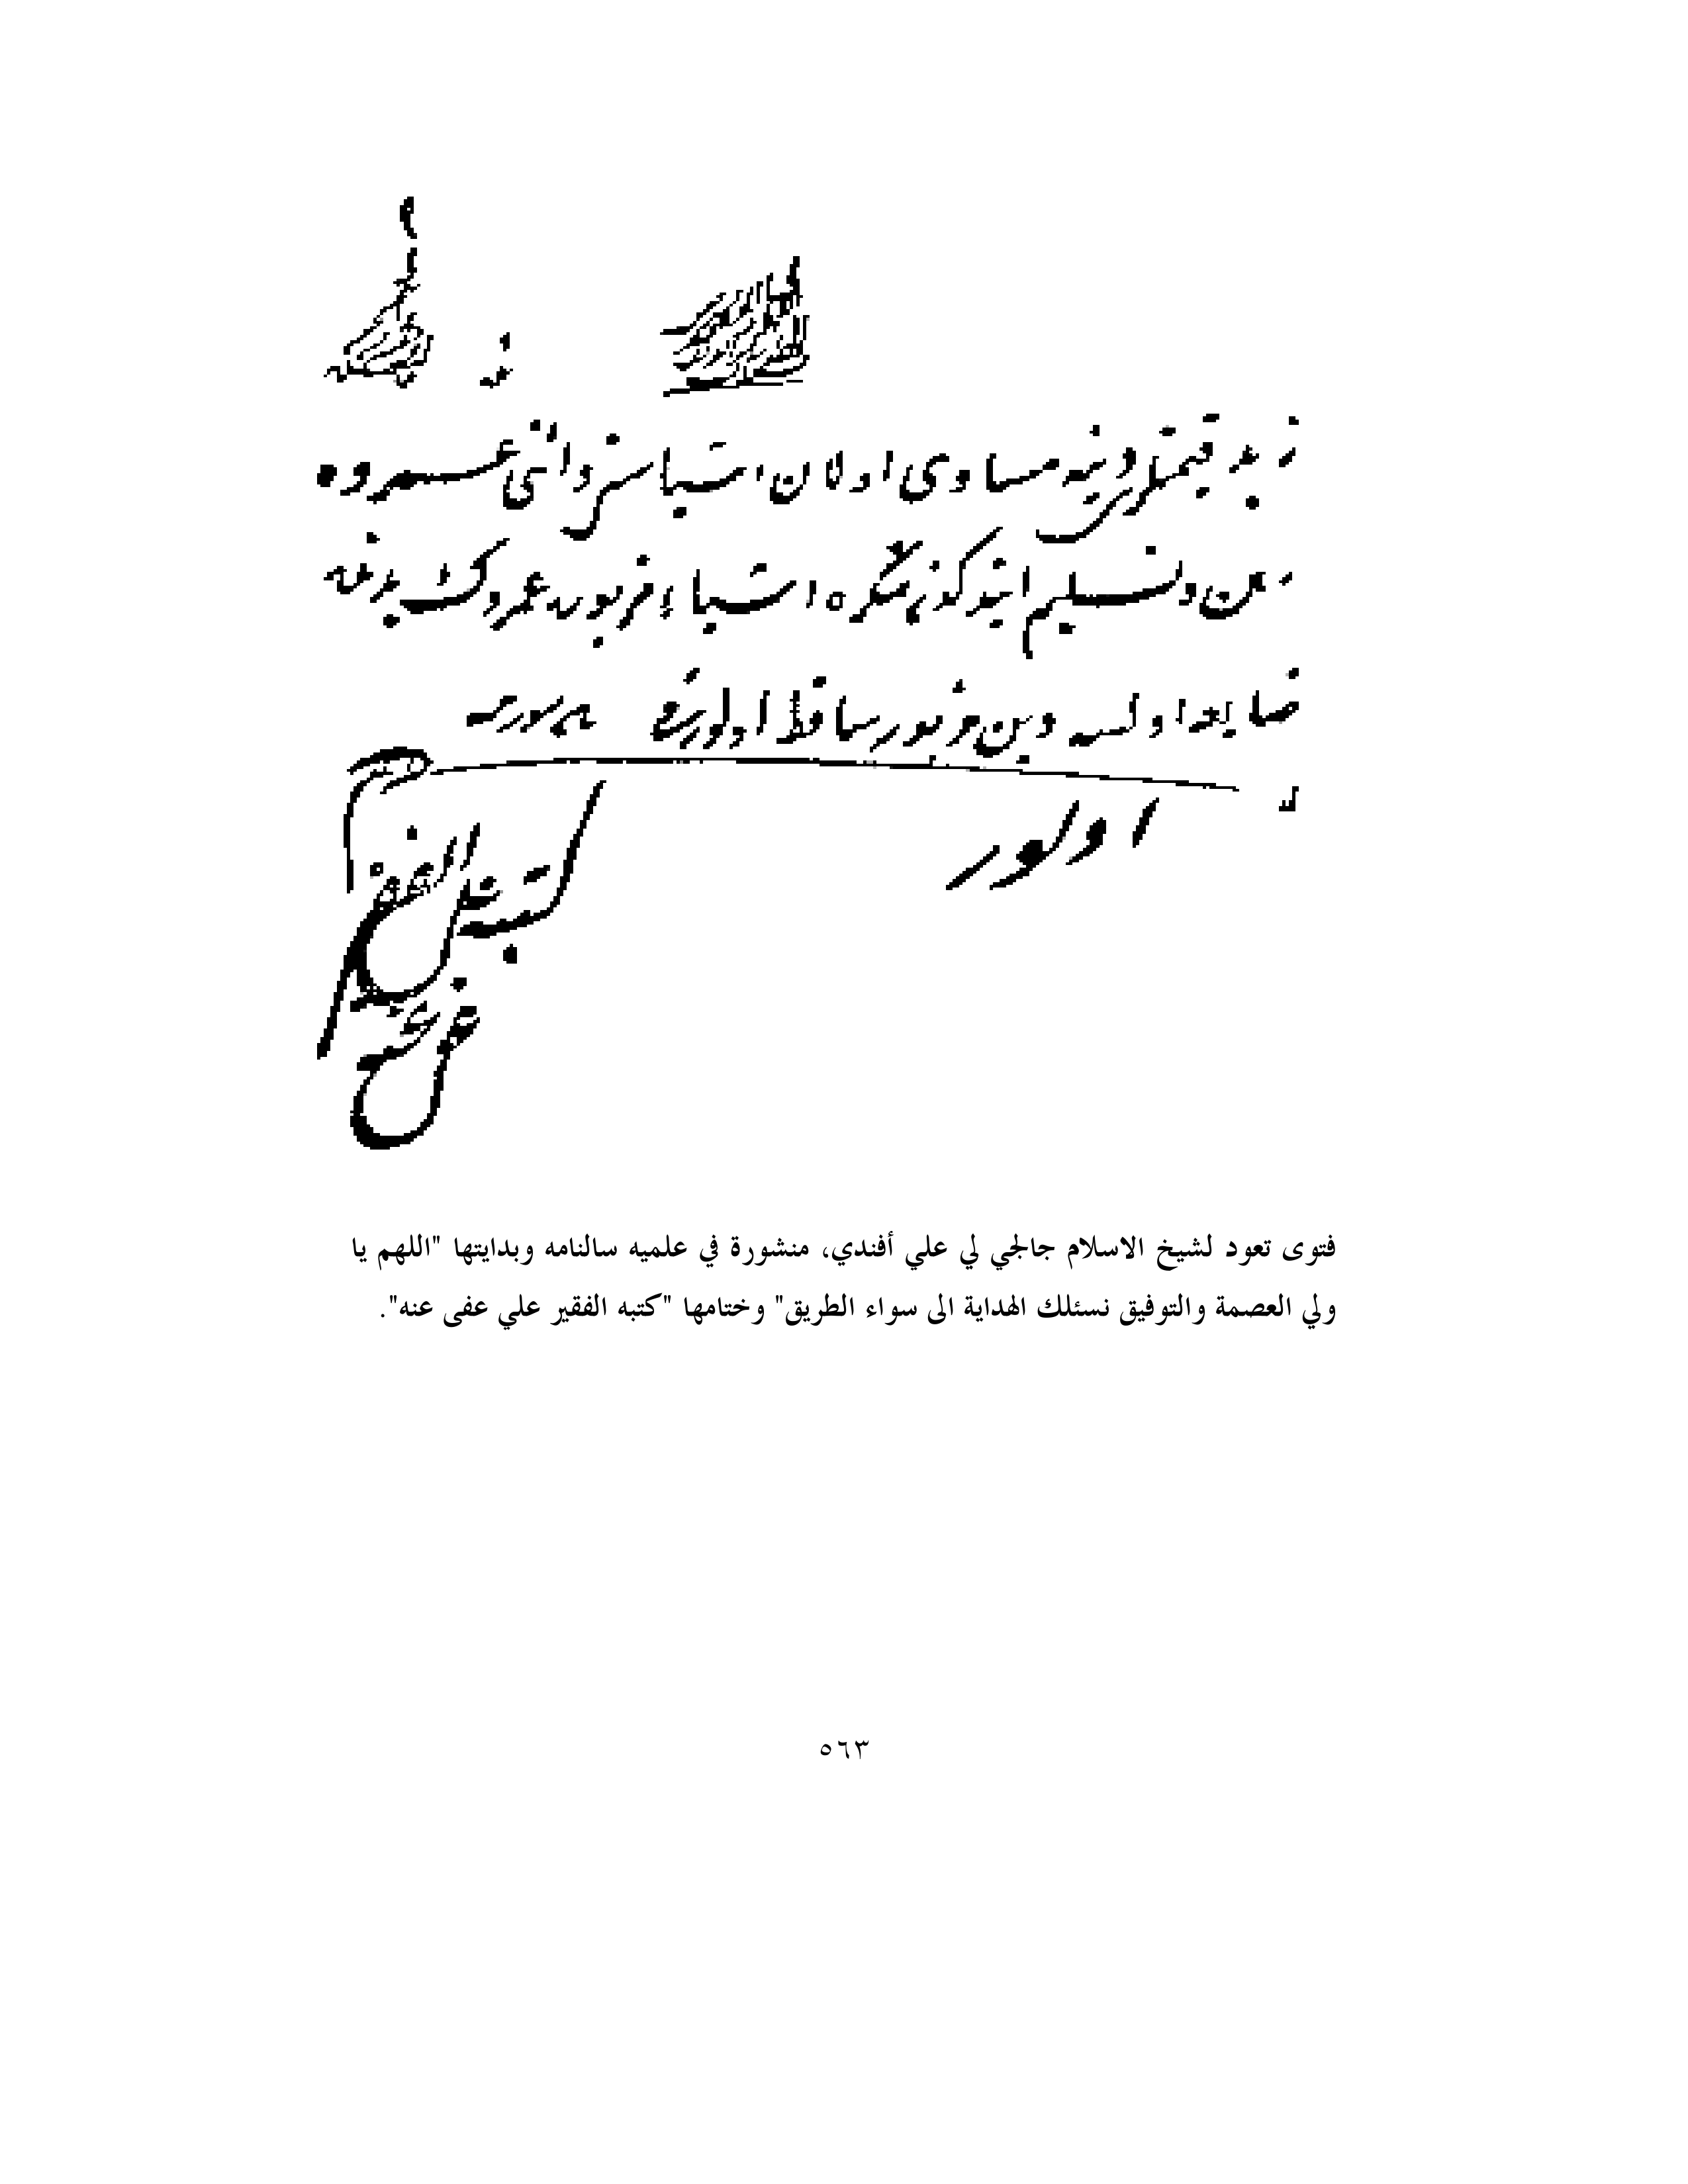 زيد قيمتلری دينيه مساوی اولان اشياسن دائنی عمروه
رهن وتسليم ايتدكدنصكره اشياء مزبوره عمروك يدنده
ضايعه اولسه دين مزبور ساقط اولورمی
اولور
كتبه الفقير
علی
عفی عنه
فتوى تعود لشيخ الاسلام جالجي لي علي أفندي، منشورة في علميه سالنامه وبدايتها "اللهم يا
ولي العصمة والتوفيق نسئلك الهداية الى سواء الطريق" وختامها "كتبه الفقير علي عفى عنه".
٥٦٣